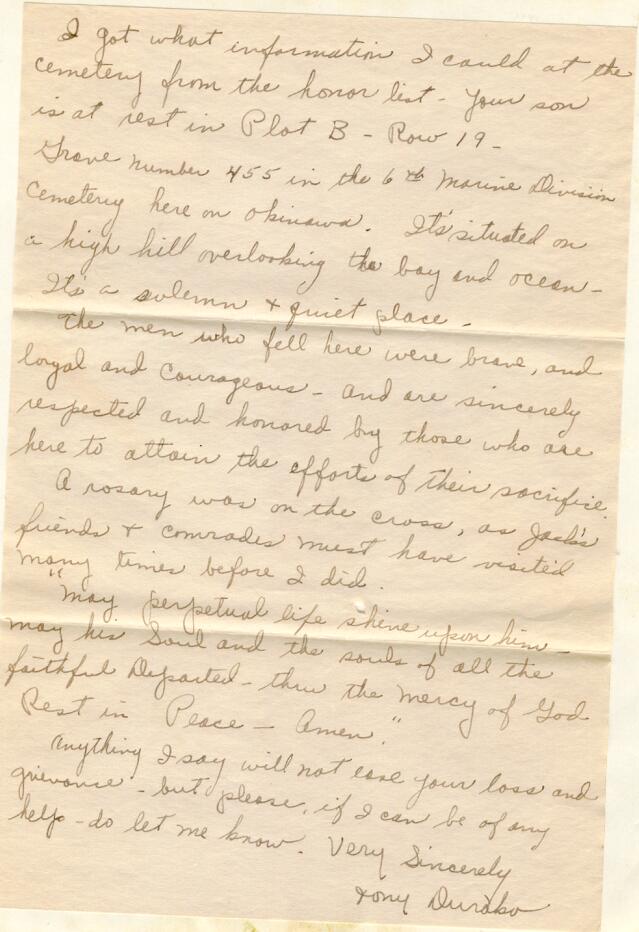 I got what information I could at the
cemetery from the honor list - Your son
is at rest in Plot B - Row 19 -
Grave number 455 in the 6th Marine Division
Cemetery here on Okinawa. It's situated on
a high hill overlooking the bay and ocean -
It's a solemn & quiet place -
The men who fell here were brave, and
loyal and courageous - and are sincerely
respected and honored by those who are
here to attain the efforts of their sacrifice.
A rosary was on the cross, as Jack's
friends & comrades must have visited
many times before I did.
"May perpetual life shine upon him -
may his Soul and the souls of all the
faithful Departed - thru the Mercy of God
Rest in Peace - Amen."
Anything I say will not ease your loss and
grievance - but please, if I can be of any
help - do let me know. Very Sincerely
Tony Durako